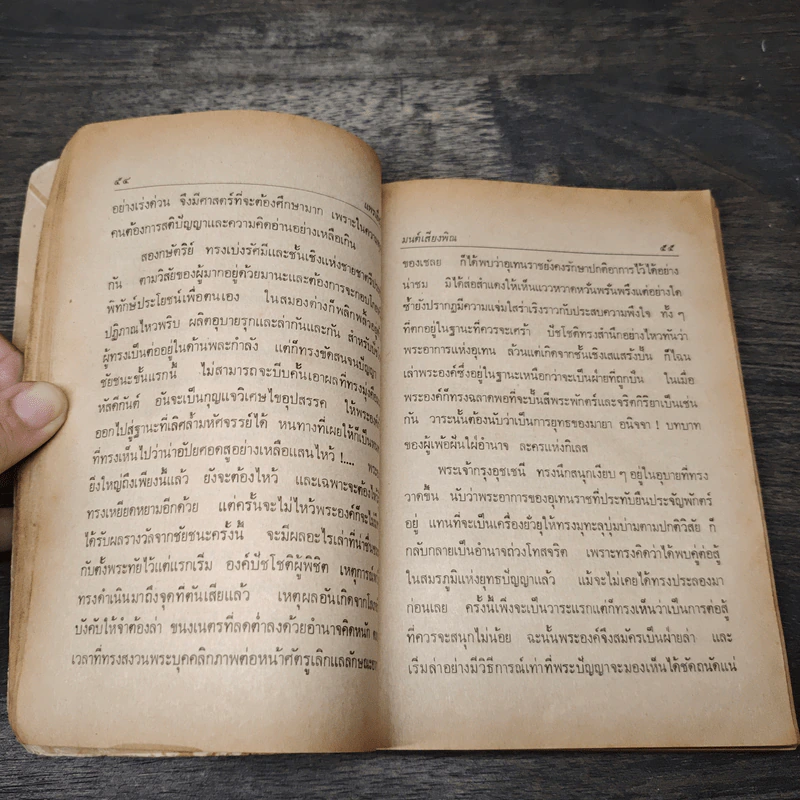 ๕๔
อย่างเร่งด่วน จึงมีศาสตร์ที่จะต้องศึกษามาก เพราะในความ
คนต้องการสติปัญญาและความคิดอ่านอย่างเหลือเกิน
สองกษัตริย์ ทรงเปล่งรัศมีและชั้นเชิงแห่งชายชาตรี
กัน ตามวิสัยของผู้มากอยู่ด้วยมานะและต้องการจะกอบโกย
พิทักษ์ประโยชน์เพื่อตนเอง ในสมองต่างก็พลิกพล้วย
ปฏิภาณไหวพริบ ผลิตอุบายรุกและล่ากันและกัน สำหรับ
ผู้ทรงเป็นต่ออยู่ในด้านพละกำลัง แต่ก็ทรงขัดสนจนปัญญา
ชัยชนะขั้นแรกนี้ ไม่สามารถจะบีบคั้นเอาผลที่ทรงมุ่ง
หัสดีกันต์ อันจะเป็นกุญแจวิเศษไขอุปสรรค ให้พระองค์
ออกไปสู่ฐานะที่เลิศล้ำมหัศจรรย์ได้ หนทางที่เผยให้ก็เป็น
ที่ทรงเห็นไปว่าน่าอัปยศอดสูอย่างเหลือแสนไหว้ !....
ยิ่งใหญ่ถึงเพียงนี้แล้ว ยังจะต้องไหว้ และเฉพาะจะต้องไหว้
ทรงเหยียดหยามอีกด้วย แต่ครั้นจะไม่ไหว้พระองค์ก็จะไม่
ได้รับผลรางวัลจากชัยชนะครั้งนี้ จะมีผลอะไรเล่าที่น่าชื่น
กับตั้งพระทัยไว้แต่แรกเริ่ม องค์ปัชโชติผู้พิชิต เหตุการณ์
ทรงดำเนินมาถึงจุดที่ตันเสียแล้ว เหตุผลอันเกิดจาก
บังคับให้จำต้องล่า ขนงเนตรที่ลดต่ำลงด้วยอำนาจคิดหนัก
เวลาที่ทรงสงวนพระบุคคลิกภาพต่อหน้าศัตรูเลิกแลลักษณะ
มนต์เสียงพิณ
๕๕
ของเชลย ก็ได้พบว่าอุเทนราชยังคงรักษาปกติอาการไว้ได้อย่าง
น่าชม มิได้ส่อสำแดงให้เห็นแววหวาดหวั่นพรั่นพรึงแต่อย่างใด
ซ้ำยังปรากฏมีความแจ่มใสร่าเริงราวกับประสบความพึงใจ ทั้ง ๆ
ที่ตกอยู่ในฐานะที่ควรจะเศร้า ปัชโชติทรงสำนึกอย่างไหวทันว่า
พระอาการแห่งอุเทน ล้วนแต่เกิดจากชั้นเชิงเสแสร้งปั้น ก็ไฉน
เล่าพระองค์ซึ่งอยู่ในฐานะเหนือกว่าจะเป็นฝ่ายที่ถูกปืน ในเมื่อ
พระองค์ก็ทรงฉลาดพอที่จะปั้นสีพระพักตร์และจริตกิริยาเป็นเช่น
กัน วาระนั้นต้องนับว่าเป็นการยุทธของมายา อนิจจา ! บทบาท
ของผู้เพ้อฝันใฝ่อำนาจ ละครแห่งกิเลส
พระเจ้ากรุงอุชเชนี ทรงนึกสนุกเงียบ ๆ อยู่ในอุบายที่ทรง
วาดขึ้น นับว่าพระอาการของอุเทนราชที่ประทับยืนประจัญพักตร์
อยู่ แทนที่จะเป็นเครื่องยั่วยุให้ทรงมุทะลุบุ่มบ่ามตามปกติวิสัย ก็
กลับกลายเป็นอำนาจถ่วงโทสจริต เพราะทรงคิดว่าได้พบคู่ต่อสู้
ในสมรภูมิแห่งยุทธปัญญาแล้ว แม้จะไม่เคยได้ทรงประลองมา
ก่อนเลย ครั้งนี้เพิ่งจะเป็นวาระแรกแต่ก็ทรงเห็นว่าเป็นการต่อสู้
ที่ควรจะสนุกไม่น้อย ฉะนั้นพระองค์จึงสมัครเป็นฝ่ายล่า และ
เริ่มล่าอย่างมีวิธีการณ์เท่าที่พระปัญญาจะมองเห็นได้ชัดถนัดแน่